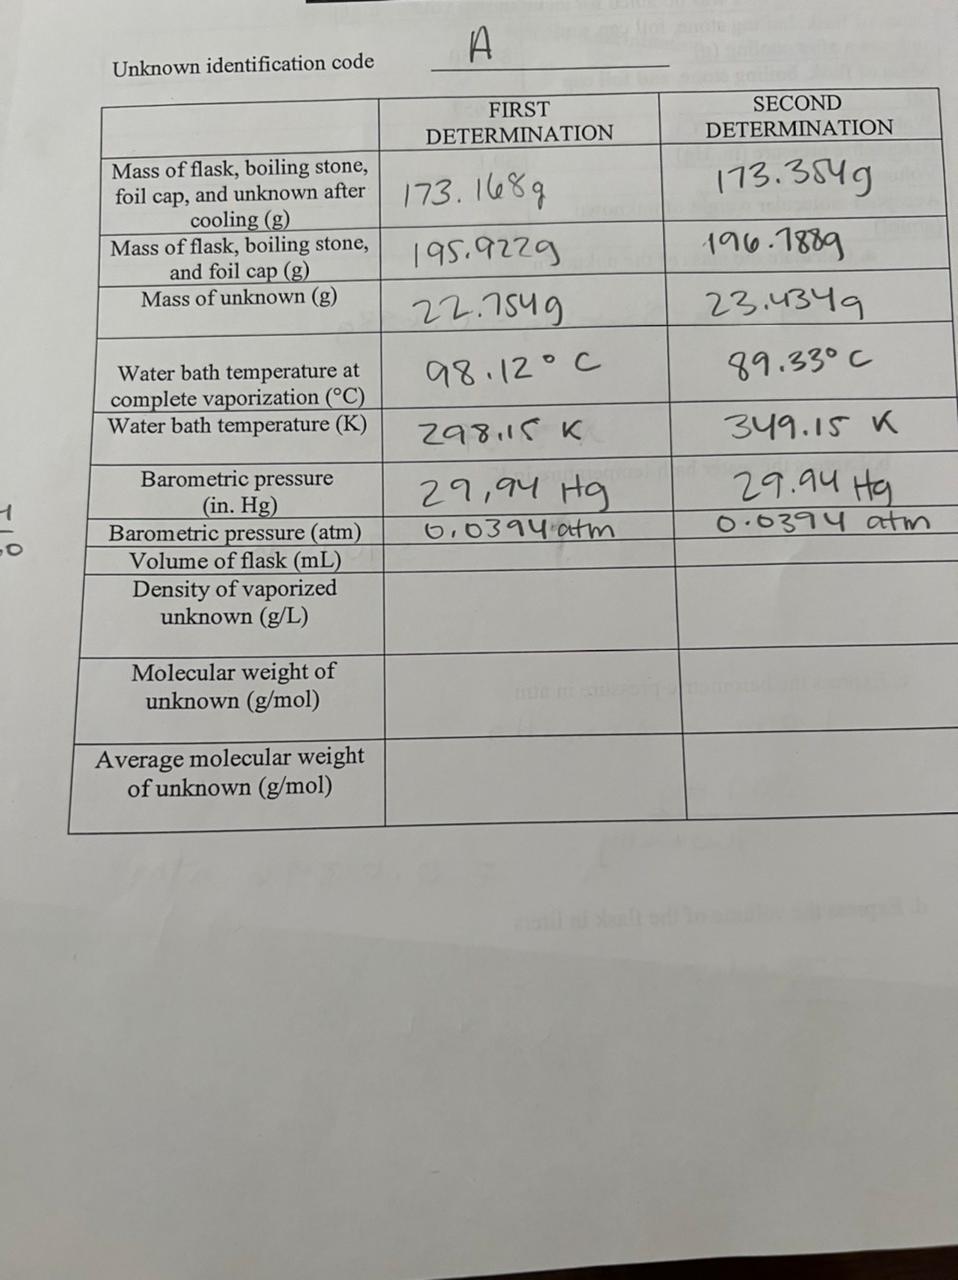 Unknown identification code A
FIRST DETERMINATION
SECOND DETERMINATION
Mass of flask, boiling stone, foil cap, and unknown after cooling (g) 173.168g 173.354g
Mass of flask, boiling stone, and foil cap (g) 195.922g 196.788g
Mass of unknown (g) 22.754g 23.434g
Water bath temperature at complete vaporization (°C) 98.12° C 89.33° C
Water bath temperature (K) 298.15 K 349.15 K
Barometric pressure (in. Hg) 29,94 Hg 29.94 Hg
Barometric pressure (atm) 0.0394 atm 0.0394 atm
Volume of flask (mL)
Density of vaporized unknown (g/L)
Molecular weight of unknown (g/mol)
Average molecular weight of unknown (g/mol)